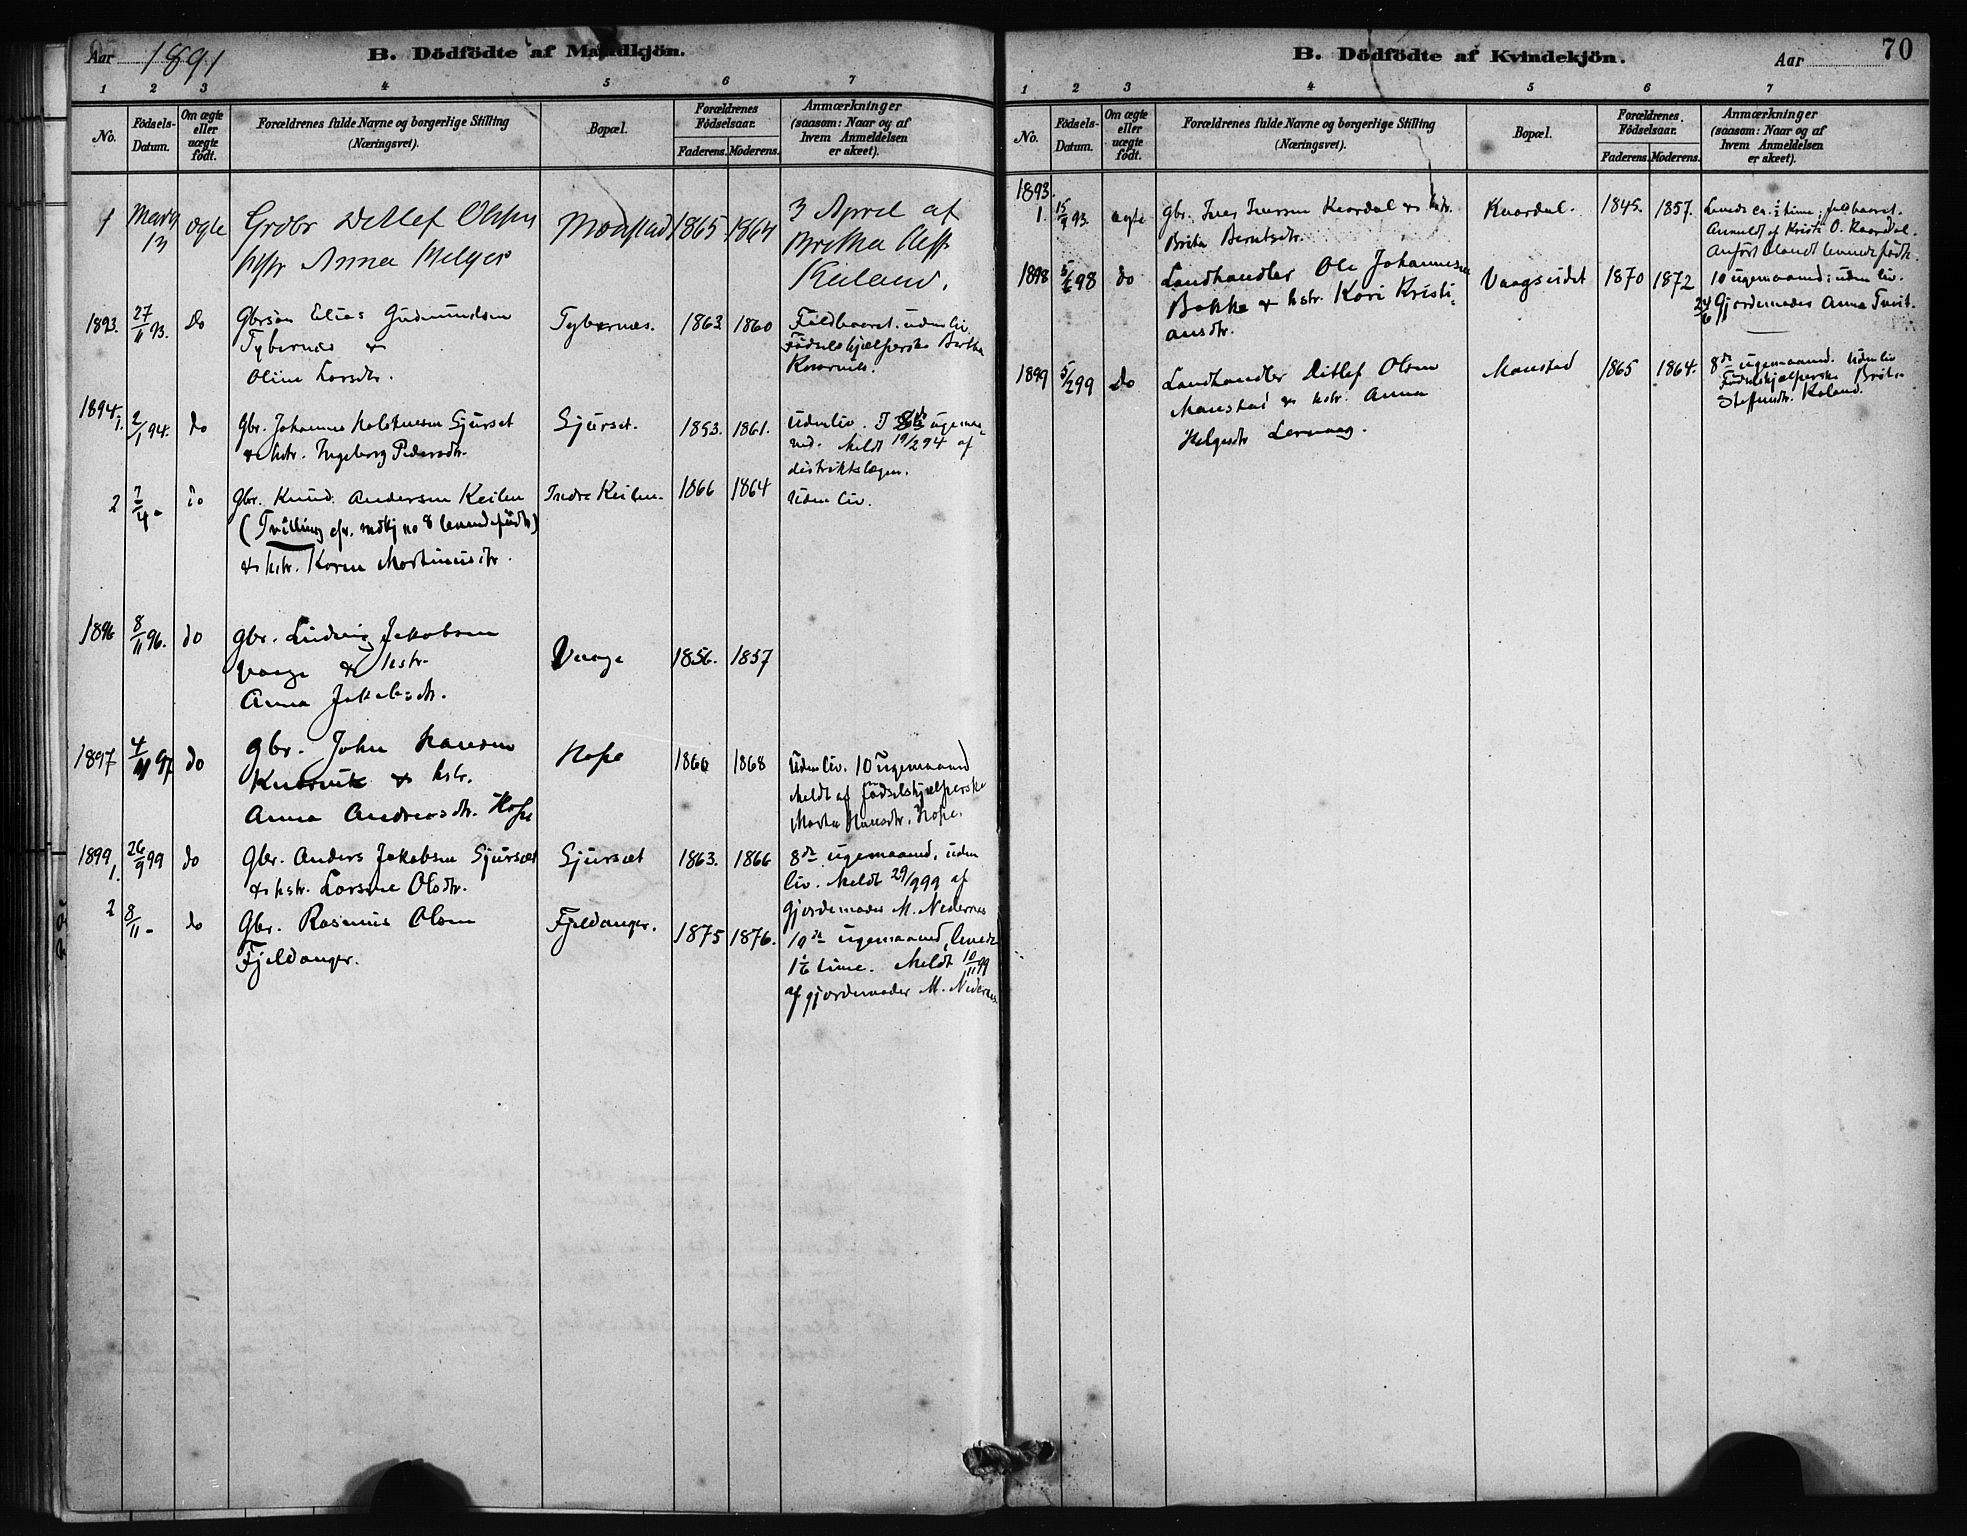 Aar 1891
B. Dödfödte af Mandkjön.
1 2 3 4 5 6 7
No.
Födsels-Datum.
Om ægte eller uægte födt.
Forældrenes fulde Navne og borgerlige Stilling
(Næringsvei).
Bopæl.
Forældrenes Födselsaar.
Faderens. Moderens.
Anmærkninger
(saasom: Naar og af
hvem Anmeldelsen
er skeet).
1 Marts 13 ægte Grdbr Detlef Olsen Monstad 1865 1864 3 April af
Anna Helges Britha
Keiland.
1893. 27/1 93. do Gbrsön Elias Gudmundsen Tybernes. 1863 1860 Fuldbaaret. uden liv
Tybernes & Födselshjælperske Bertha
Oline Larsdtr.
1894. 1. 2/1 94. do gbr. Johannes Sjurset Sjurset. 1853. 1861. Uden liv. I 8de ugemaa-
& hstr. Ingeborg Pedersdtr. ned. Meldt 19/2 94 af
distriktslægen.
2 7/4 - do gbr. Knud Andersen Keilen Indre Keilen. 1866 1864 Uden liv.
(Tvilling cfr. mdkj no 8 levendefödte)
& hstr. Karen Martinusdtr.
1896 8/11 96. do gbr. Ludvig Jakobsen Vaage 1856. 1857
Vaage & hstr.
Anna Jakobsdtr.
1897 4/11 97 do gbr. John Hansen Hope 1866 1868 Uden liv. 10 ugemaaned
& hstr. Meldt af födselshjælperske
Anna Andersdtr. Hope Marta Hansdtr. Hope.
1899 1. 26/9 99 do Gbr. Anders Jakobsen Sjurset Sjurset 1863. 1866 8de ugemaaned, uden
& hstr. Larsine Olsdtr. liv. Meldt 29/9 99 af
gjordemoder M. Nedernes
2 8/11 - do Gbr. Rasmus Olsen Fjeldanger. 1875 1876. 10de ugemaaned, levede
Fjeldanger. 1/6 time. Meldt 10/11 99
af gjordemoder M. Nedernes
B. Dödfödte af Kvindekjön.
Aar
70
1 2 3 4 5 6 7
No.
Födsels-Datum.
Om ægte eller uægte födt.
Forældrenes fulde Navne og borgerlige Stilling
(Næringsvei).
Bopæl.
Forældrenes Födselsaar.
Faderens. Moderens.
Anmærkninger
(saasom: Naar og af
hvem Anmeldelsen
er skeet).
1893.
1. 15/9 93. ægte gbr. Iver Iversen Kaardal & hstr. Kaardal. 1845. 1857. Levede ca. 1/2 time; fuldbaaret.
Brita Berntsdtr. Anmeldt af Kristi O. Kaardal.
Anfört blandt levendefödte.
1898 5/6 98 do Landhandler Ole Johannesen Vaagseidet 1870 1872 10 ugemaaned; uden liv.
Bakke & hstr. Kari Kristi- 24/6 Gjordemoder Anna Tveit.
ansdtr.
1899 5/2 99 do Landhandler Ditlef Olsen Monstad 1865 1864. 8de ugemaaned. Uden liv
Monstad & hstr. Anna Födselshjælperske Brita
Helgesdtr Leirvaag. Steffensdtr. Keiland.